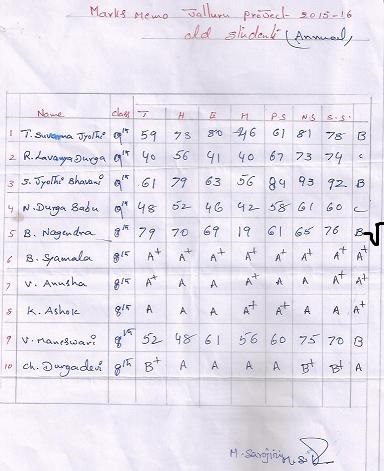 Marks Memo Valluru project 2015-16
old students (Annual)
Name class T H E M P.S N.S S.S.
1 T. Suvarna Jyothi 9th 59 73 80 46 61 81 78 B
2 R. Lavanya Durga 9th 40 56 41 40 67 73 74 C
3 S. Jyothi Bhavani 9th 61 79 63 56 84 93 92 B
4 N. Durga Babu 9th 48 52 46 42 58 61 60 C
5 B. Nagendra 8th 79 70 69 19 61 65 76 B
6 B. Syamala 8th A+ A+ A+ A+ A+ A+ A+ A+
7 V. Anusha 8th A+ A A A+ A A+ A+ A+
8 K. Ashok 8th A A A A+ A+ A A A+
9 V. Maneswari 8th 52 48 61 56 60 75 70 B
10 Ch. Durgadevi 8th B+ A A A A B+ B+ A
M. Sarojini